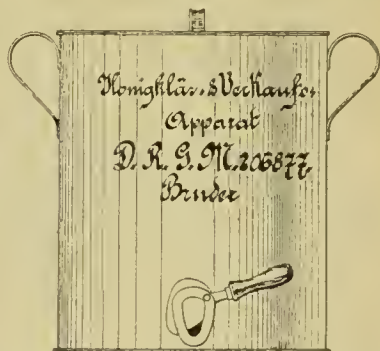 Honigklär- & Verkaufs-
Apparat
D. R. G. M. 206877
Bruder